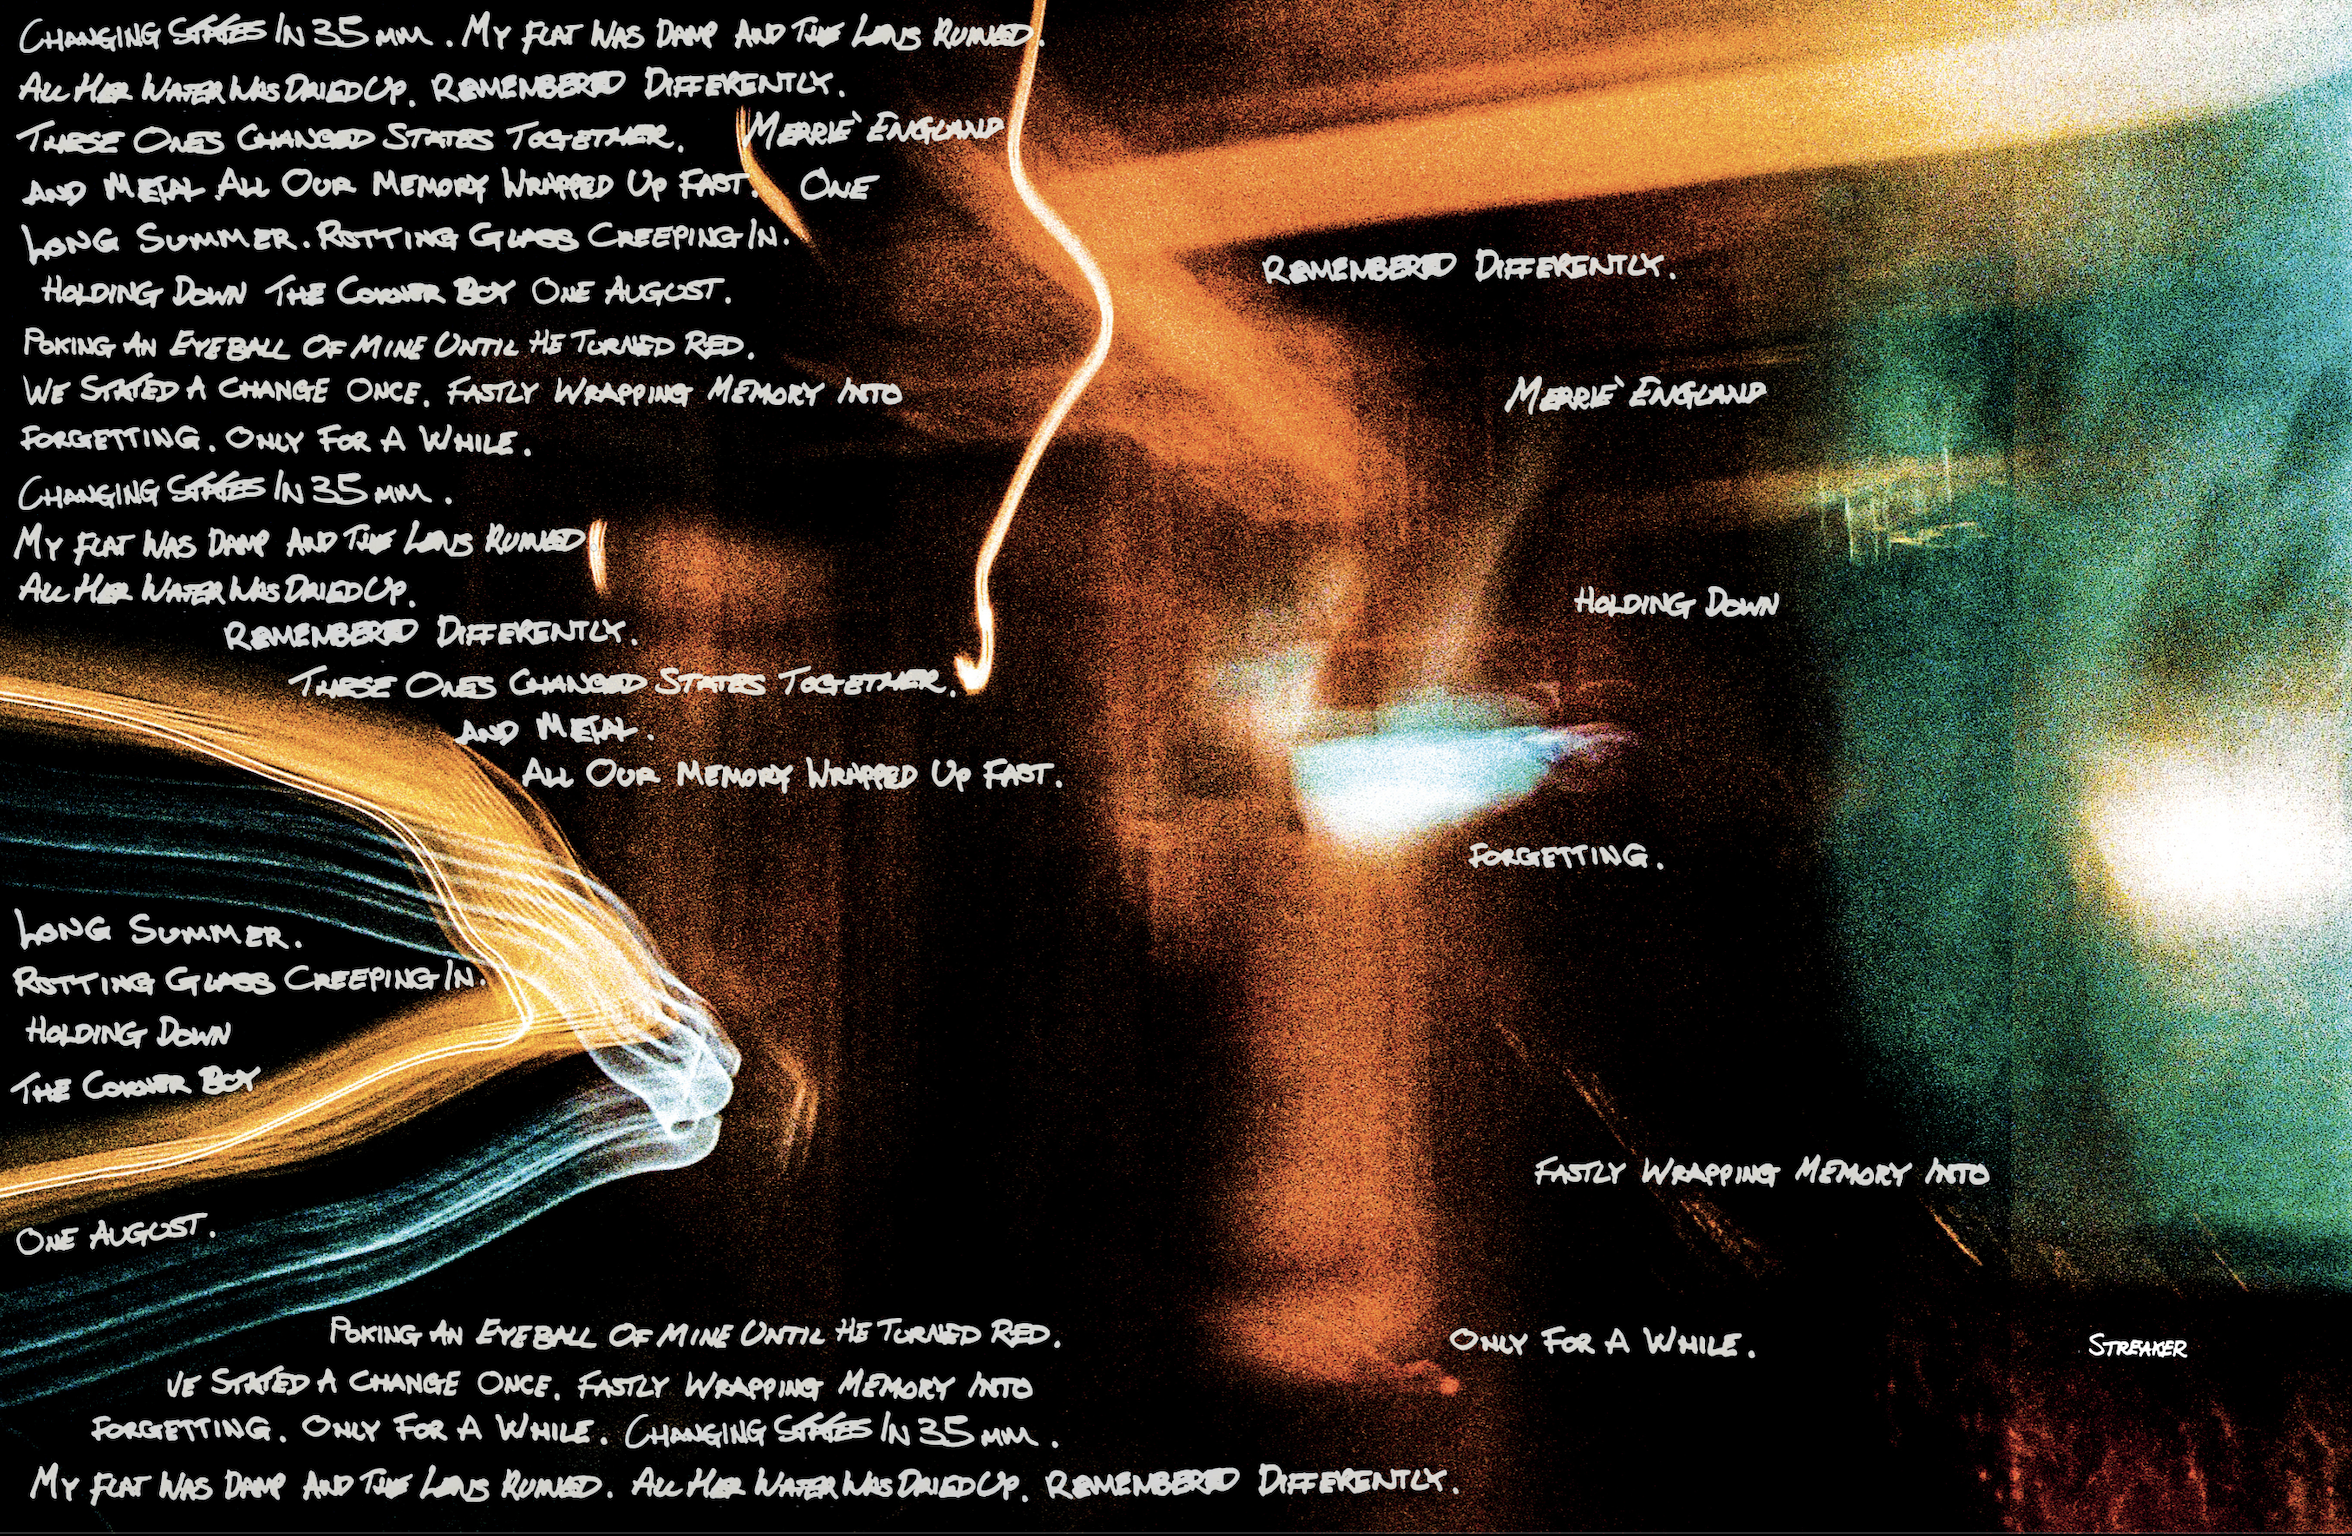 Changing States In 35 mm. My Flat Was Damp And The Lens Ruined.
All Her Water Was Dried Up. Remembered Differently.
These Ones Changed States Together. Merrie` England
And Metal All Our Memory Wrapped Up Fast. One
Long Summer. Rotting Glass Creeping In.
Holding Down The Corner Boy One August.
Poking An Eyeball Of Mine Until He Turned Red.
We Stated A Change Once. Fastly Wrapping Memory Into
Forgetting. Only For A While.
Changing States In 35 mm.
My Flat Was Damp And The Lens Ruined
All Her Water Was Dried Up.
Remembered Differently.
These Ones Changed States Together.
And Metal.
All Our Memory Wrapped Up Fast.
Long Summer.
Rotting Glass Creeping In.
Holding Down
The Corner Boy
One August.
Poking An Eyeball Of Mine Until He Turned Red.
We Stated A Change Once. Fastly Wrapping Memory Into
Forgetting. Only For A While. Changing States In 35 mm.
My Flat Was Damp And The Lens Ruined. All Her Water Was Dried Up. Remembered Differently.
Remembered Differently.
Merrie` England
Holding Down
Forgetting.
Fastly Wrapping Memory Into
Only For A While.
Streaker